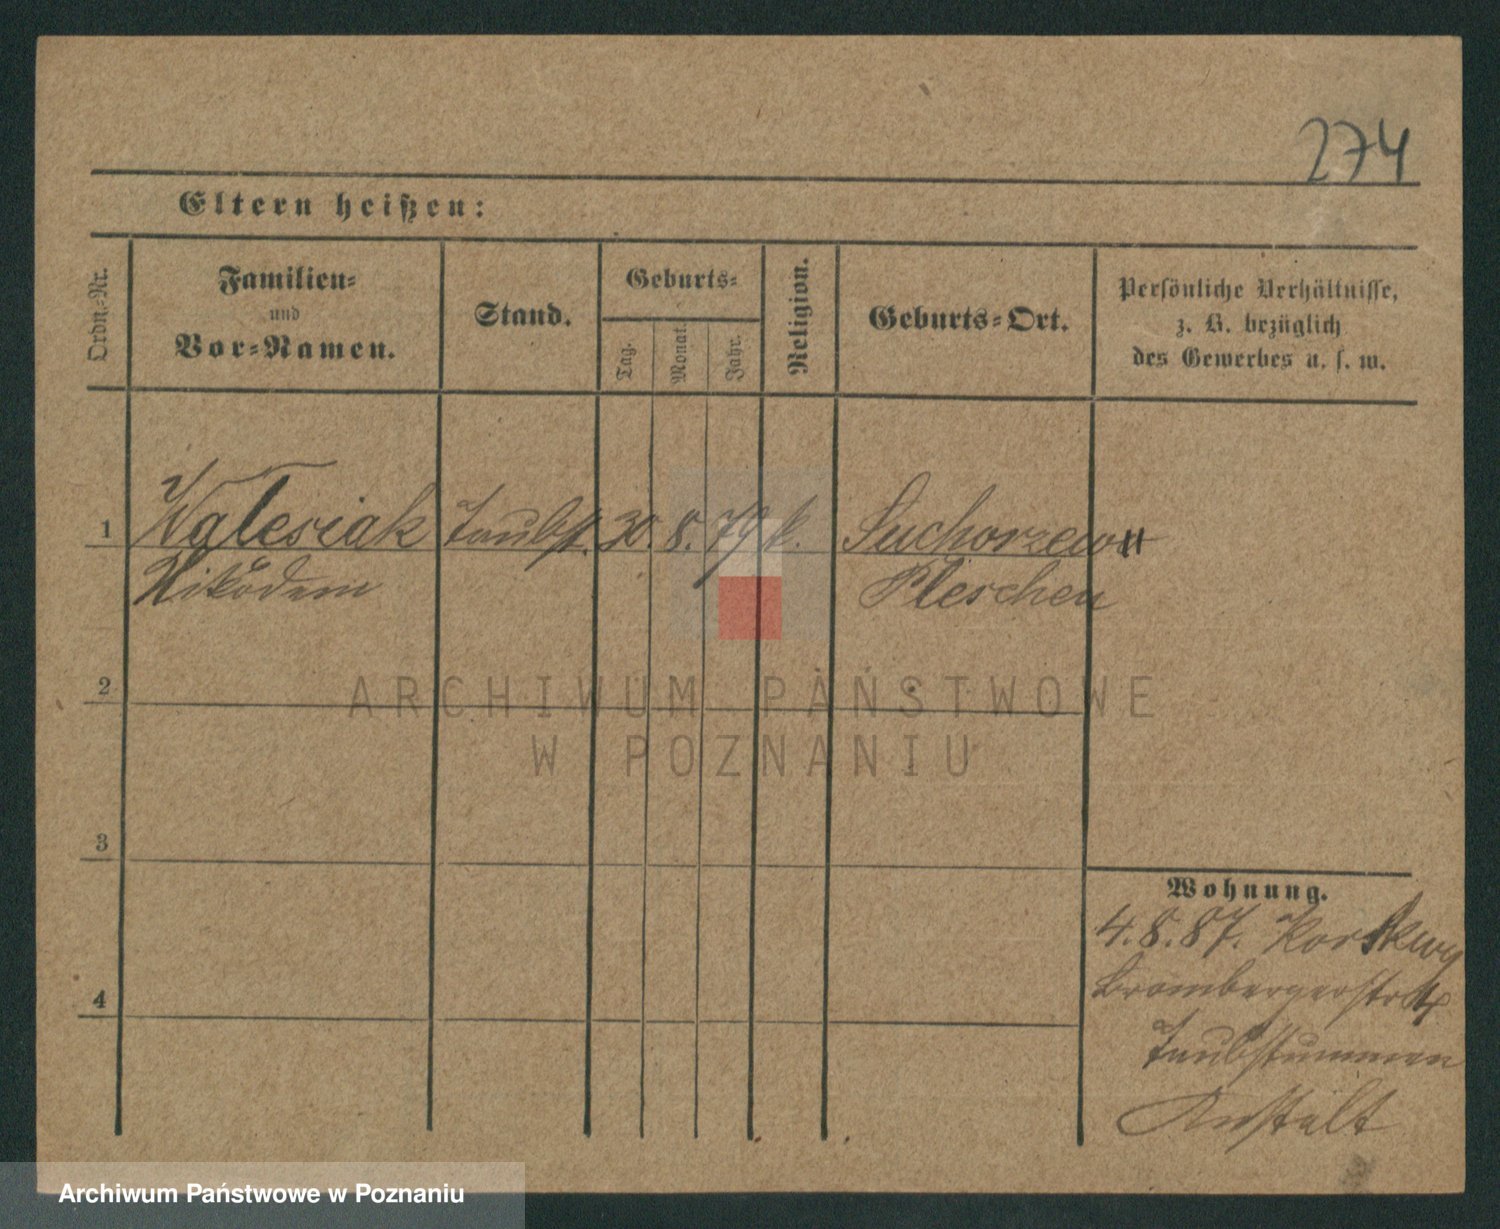 274
Eltern heißen:
Ordn.-Nr.
Familien-
und
Vor-Namen.
Stand.
Geburts-
Tag.
Monat.
Jahr.
Religion.
Geburts-Ort.
Persönliche Verhältnisse,
z. B. bezüglich
des Gewerbes u. s. w.
1 Walesiak Taubst. 30. 8. 79 k. Suchorzew
Nikodem Pleschen
2
ARCHIWUM PAŃSTWOWE
W POZNANIU
3
Wohnung.
4. 8. 87.
Brombergerstr 4
4
Taubstummen
Anstalt
Archiwum Państwowe w Poznaniu